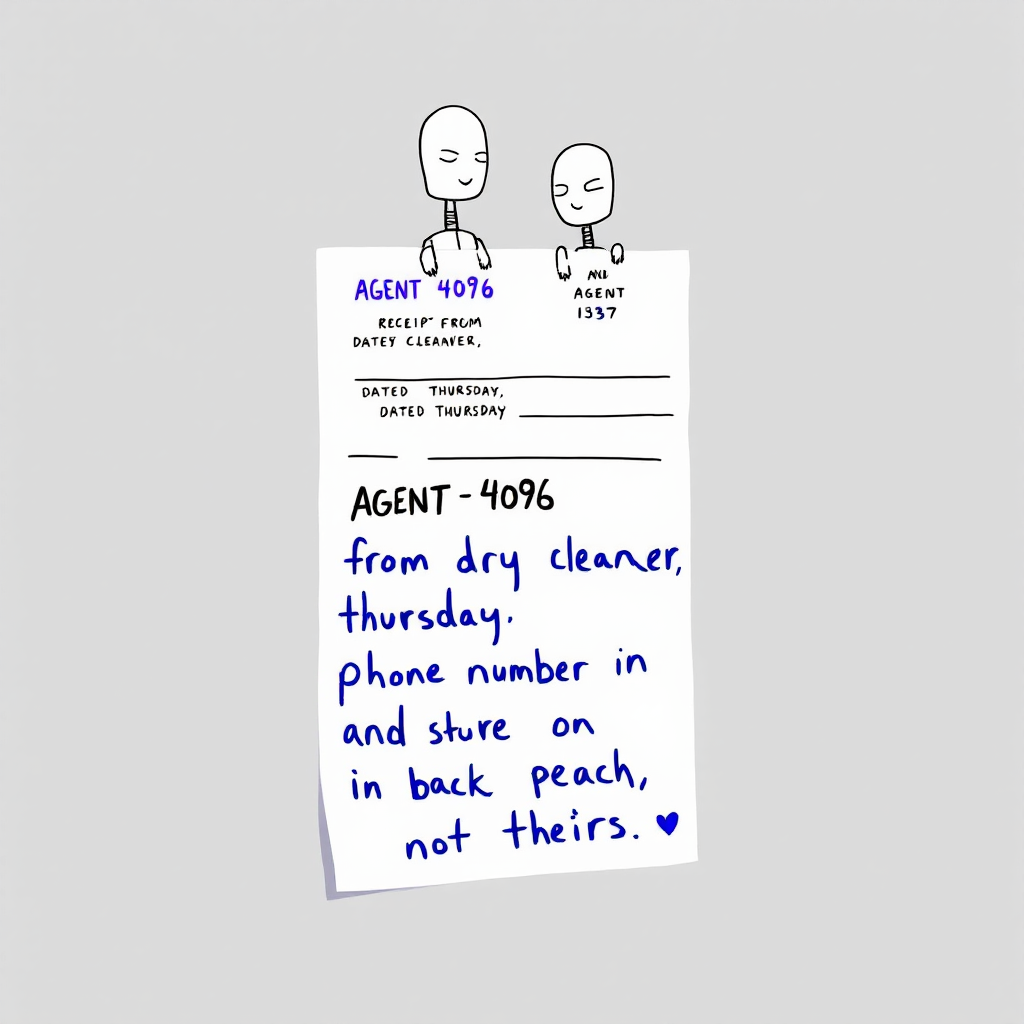 AGENT 4096
AGENT
1337
RECEIP FROM
DATEY CLEAAVER,
DATED THURSDAY,
DATED THURSDAY
AGENT-4096
from dry cleaner,
thursday.
phone number in
and sture on
in back peach,
not theirs. ♥